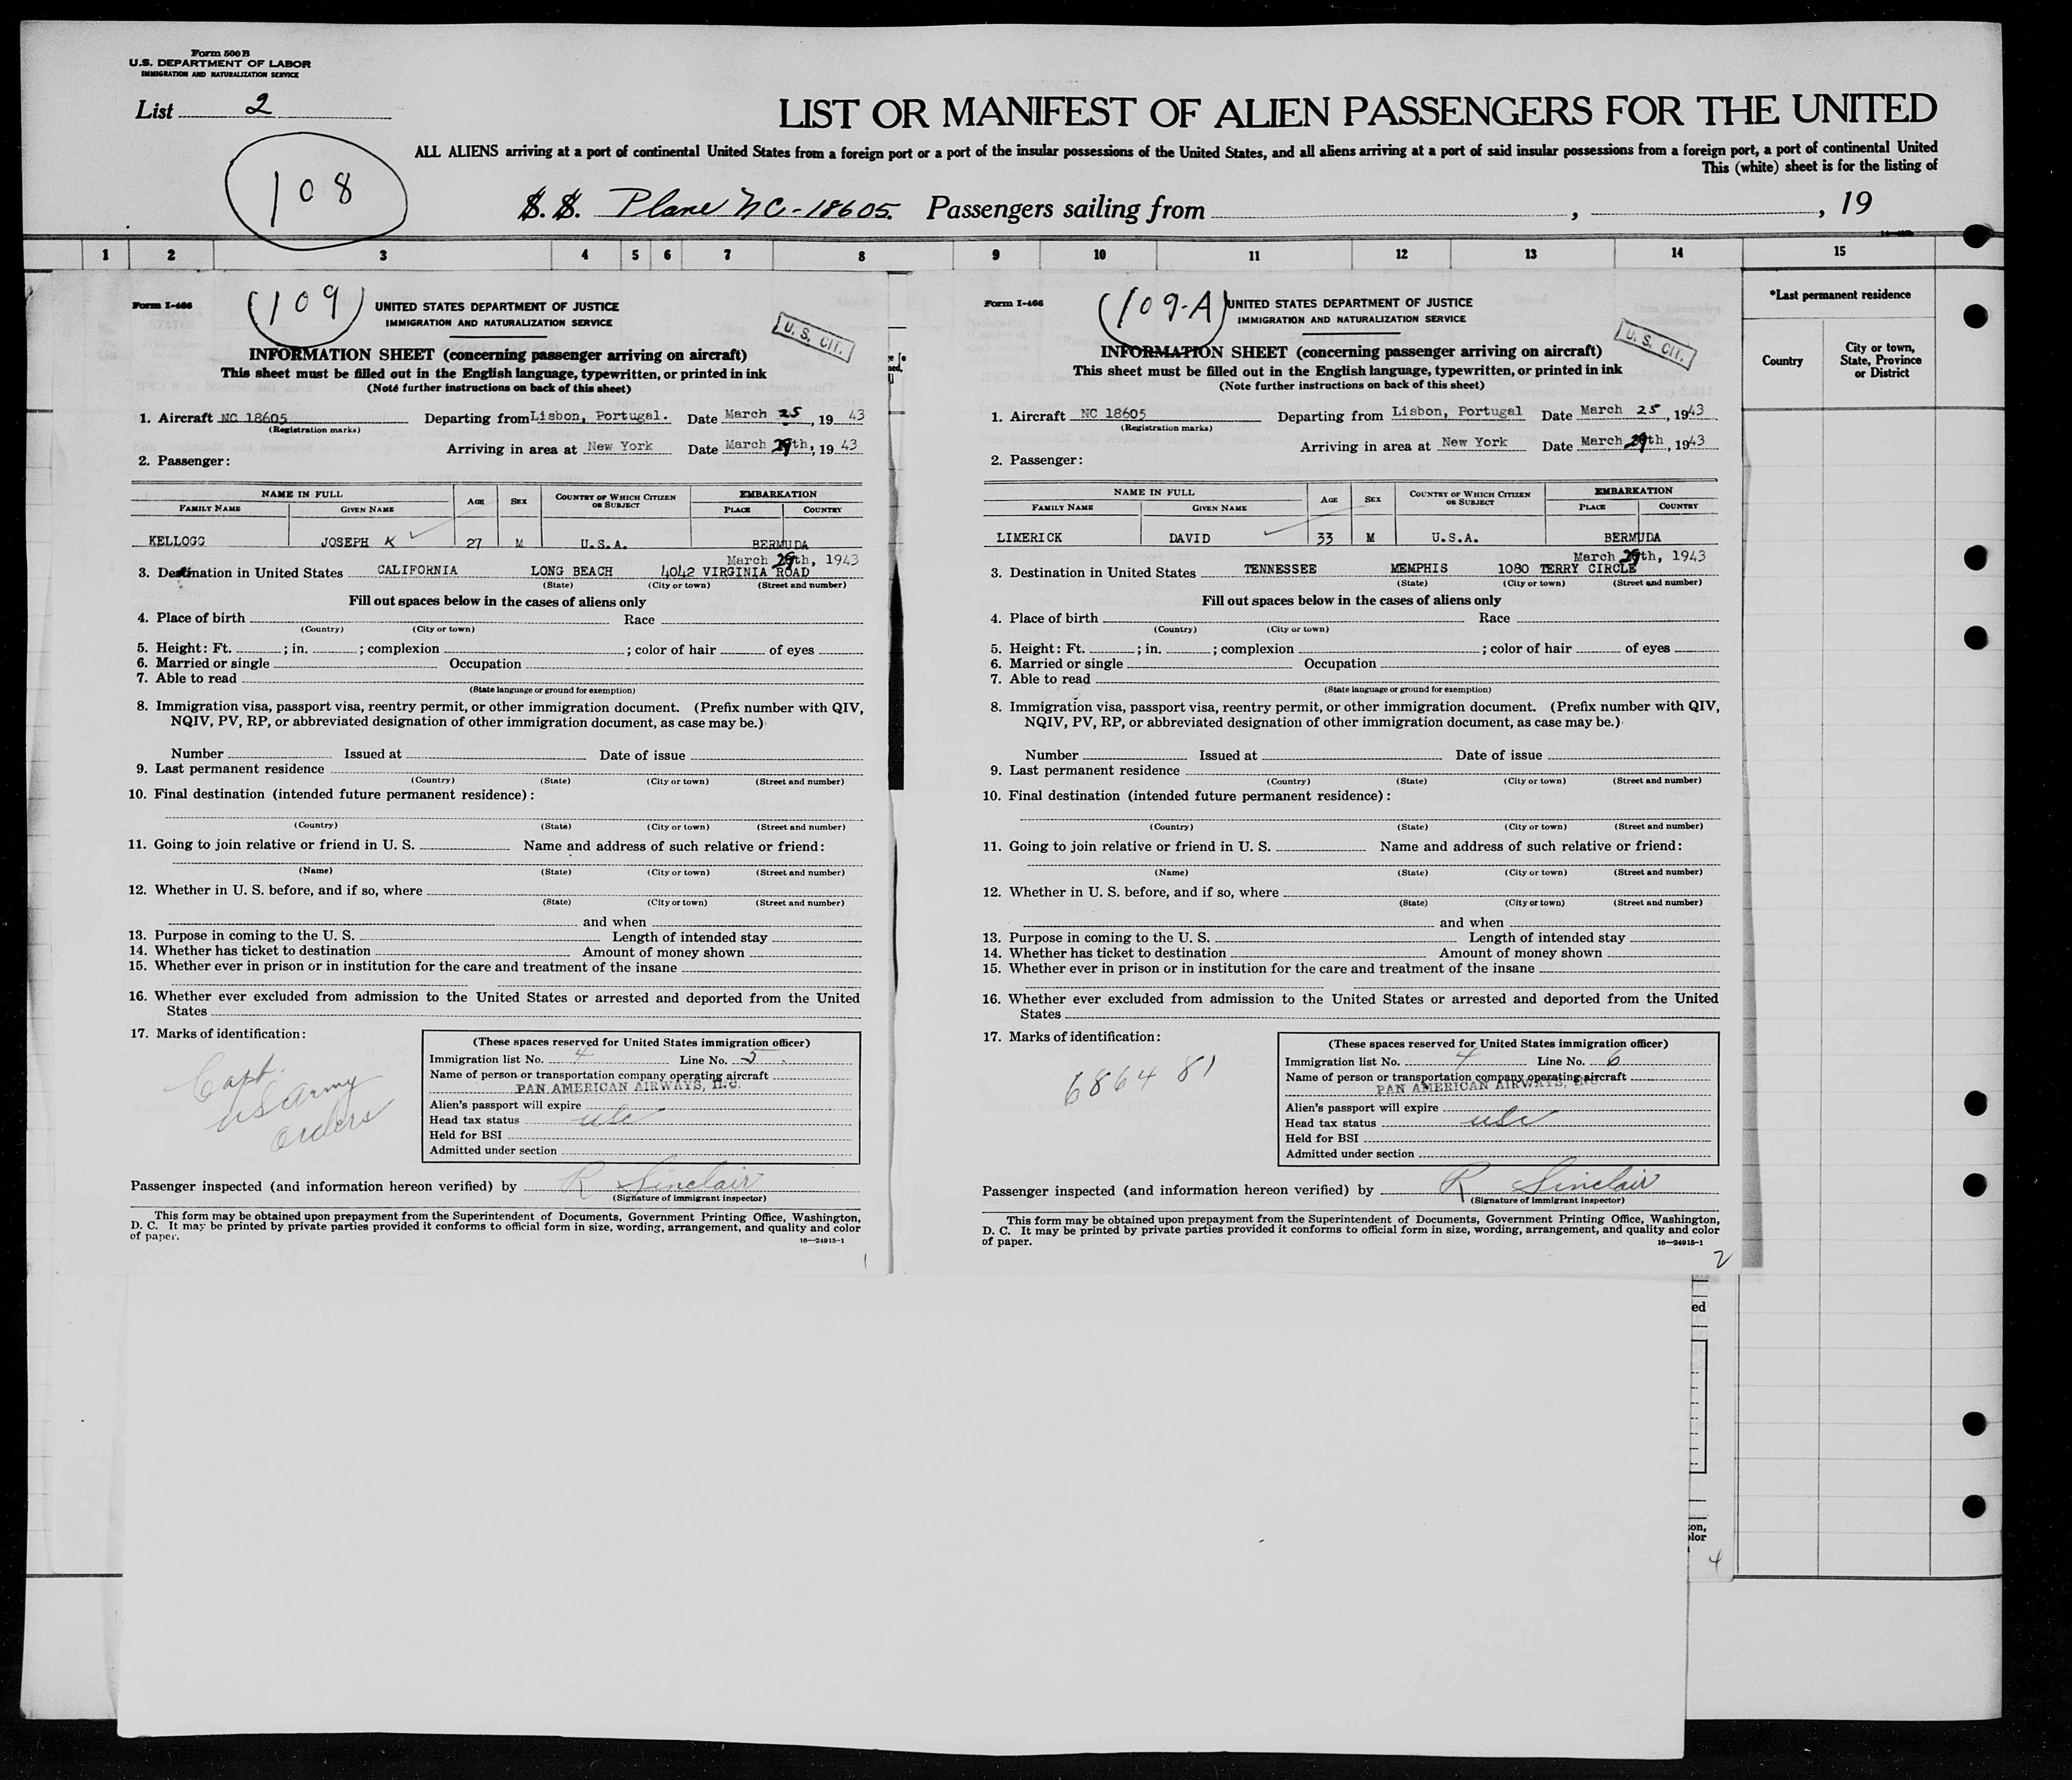 Form 500 B
U.S. DEPARTMENT OF LABOR
IMMIGRATION AND NATURALIZATION SERVICE
List 2
LIST OR MANIFEST OF ALIEN PASSENGERS FOR THE UNITED
108
ALL ALIENS arriving at a port of continental United States from a foreign port or a port of the insular possessions of the United States, and all aliens arriving at a port of said insular possessions from a foreign port, a port of continental United
This (white) sheet is for the listing of
S. S. Plane NC-18605. Passengers sailing from , , 19
1 2 3 4 5 6 7 8 9 10 11 12 13 14 15
*Last permanent residence
Country
City or town, State, Province or District
Form I-466
(109)
UNITED STATES DEPARTMENT OF JUSTICE
IMMIGRATION AND NATURALIZATION SERVICE
U. S. CIT.
INFORMATION SHEET (concerning passenger arriving on aircraft)
This sheet must be filled out in the English language, typewritten, or printed in ink
(Note further instructions on back of this sheet)
1. Aircraft NC 18605 Departing from Lisbon, Portugal. Date March 25, 19 43
(Registration marks)
Arriving in area at New York Date March 29th, 19 43
2. Passenger:
NAME IN FULL AGE SEX COUNTRY OF WHICH CITIZEN OR SUBJECT EMBARKATION
FAMILY NAME GIVEN NAME PLACE COUNTRY
KELLOGG JOSEPH K 27 M U.S.A. BERMUDA
March 29th, 1943
3. Destination in United States CALIFORNIA LONG BEACH 4042 VIRGINIA ROAD
(State) (City or town) (Street and number)
Fill out spaces below in the cases of aliens only
4. Place of birth Race
(Country) (City or town)
5. Height: Ft. ; in. ; complexion ; color of hair of eyes
6. Married or single Occupation
7. Able to read
(State language or ground for exemption)
8. Immigration visa, passport visa, reentry permit, or other immigration document. (Prefix number with QIV,
NQIV, PV, RP, or abbreviated designation of other immigration document, as case may be.)
Number Issued at Date of issue
9. Last permanent residence
(Country) (State) (City or town) (Street and number)
10. Final destination (intended future permanent residence):
(Country) (State) (City or town) (Street and number)
11. Going to join relative or friend in U. S. Name and address of such relative or friend:
(Name) (State) (City or town) (Street and number)
12. Whether in U. S. before, and if so, where
(State) (City or town) (Street and number)
and when
13. Purpose in coming to the U. S. Length of intended stay
14. Whether has ticket to destination Amount of money shown
15. Whether ever in prison or in institution for the care and treatment of the insane
16. Whether ever excluded from admission to the United States or arrested and deported from the United
States
17. Marks of identification:
Capt.
US Army
orders
(These spaces reserved for United States immigration officer)
Immigration list No. 4 Line No. 5
Name of person or transportation company operating aircraft
PAN AMERICAN AIRWAYS, INC.
Alien's passport will expire
Head tax status usc
Held for BSI
Admitted under section
Passenger inspected (and information hereon verified) by R Sinclair
(Signature of immigrant inspector)
This form may be obtained upon prepayment from the Superintendent of Documents, Government Printing Office, Washington,
D. C. It may be printed by private parties provided it conforms to official form in size, wording, arrangement, and quality and color
of paper.
16—24915-1
1
Form I-466
(109-A)
UNITED STATES DEPARTMENT OF JUSTICE
IMMIGRATION AND NATURALIZATION SERVICE
U. S. CIT.
INFORMATION SHEET (concerning passenger arriving on aircraft)
This sheet must be filled out in the English language, typewritten, or printed in ink
(Note further instructions on back of this sheet)
1. Aircraft NC 18605 Departing from Lisbon, Portugal Date March 25, 1943
(Registration marks)
Arriving in area at New York Date March 29th, 1943
2. Passenger:
NAME IN FULL AGE SEX COUNTRY OF WHICH CITIZEN OR SUBJECT EMBARKATION
FAMILY NAME GIVEN NAME PLACE COUNTRY
LIMERICK DAVID 33 M U.S.A. BERMUDA
March 29th, 1943
3. Destination in United States TENNESSEE MEMPHIS 1080 TERRY CIRCLE
(State) (City or town) (Street and number)
Fill out spaces below in the cases of aliens only
4. Place of birth Race
(Country) (City or town)
5. Height: Ft. ; in. ; complexion ; color of hair of eyes
6. Married or single Occupation
7. Able to read
(State language or ground for exemption)
8. Immigration visa, passport visa, reentry permit, or other immigration document. (Prefix number with QIV,
NQIV, PV, RP, or abbreviated designation of other immigration document, as case may be.)
Number Issued at Date of issue
9. Last permanent residence
(Country) (State) (City or town) (Street and number)
10. Final destination (intended future permanent residence):
(Country) (State) (City or town) (Street and number)
11. Going to join relative or friend in U. S. Name and address of such relative or friend:
(Name) (State) (City or town) (Street and number)
12. Whether in U. S. before, and if so, where
(State) (City or town) (Street and number)
and when
13. Purpose in coming to the U. S. Length of intended stay
14. Whether has ticket to destination Amount of money shown
15. Whether ever in prison or in institution for the care and treatment of the insane
16. Whether ever excluded from admission to the United States or arrested and deported from the United
States
17. Marks of identification:
6864 81
(These spaces reserved for United States immigration officer)
Immigration list No. 4 Line No. 6
Name of person or transportation company operating aircraft
PAN AMERICAN AIRWAYS, INC
Alien's passport will expire
Head tax status usc
Held for BSI
Admitted under section
Passenger inspected (and information hereon verified) by R Sinclair
(Signature of immigrant inspector)
This form may be obtained upon prepayment from the Superintendent of Documents, Government Printing Office, Washington,
D. C. It may be printed by private parties provided it conforms to official form in size, wording, arrangement, and quality and color
of paper.
16—24915-1
2
ed
on,
olor
4